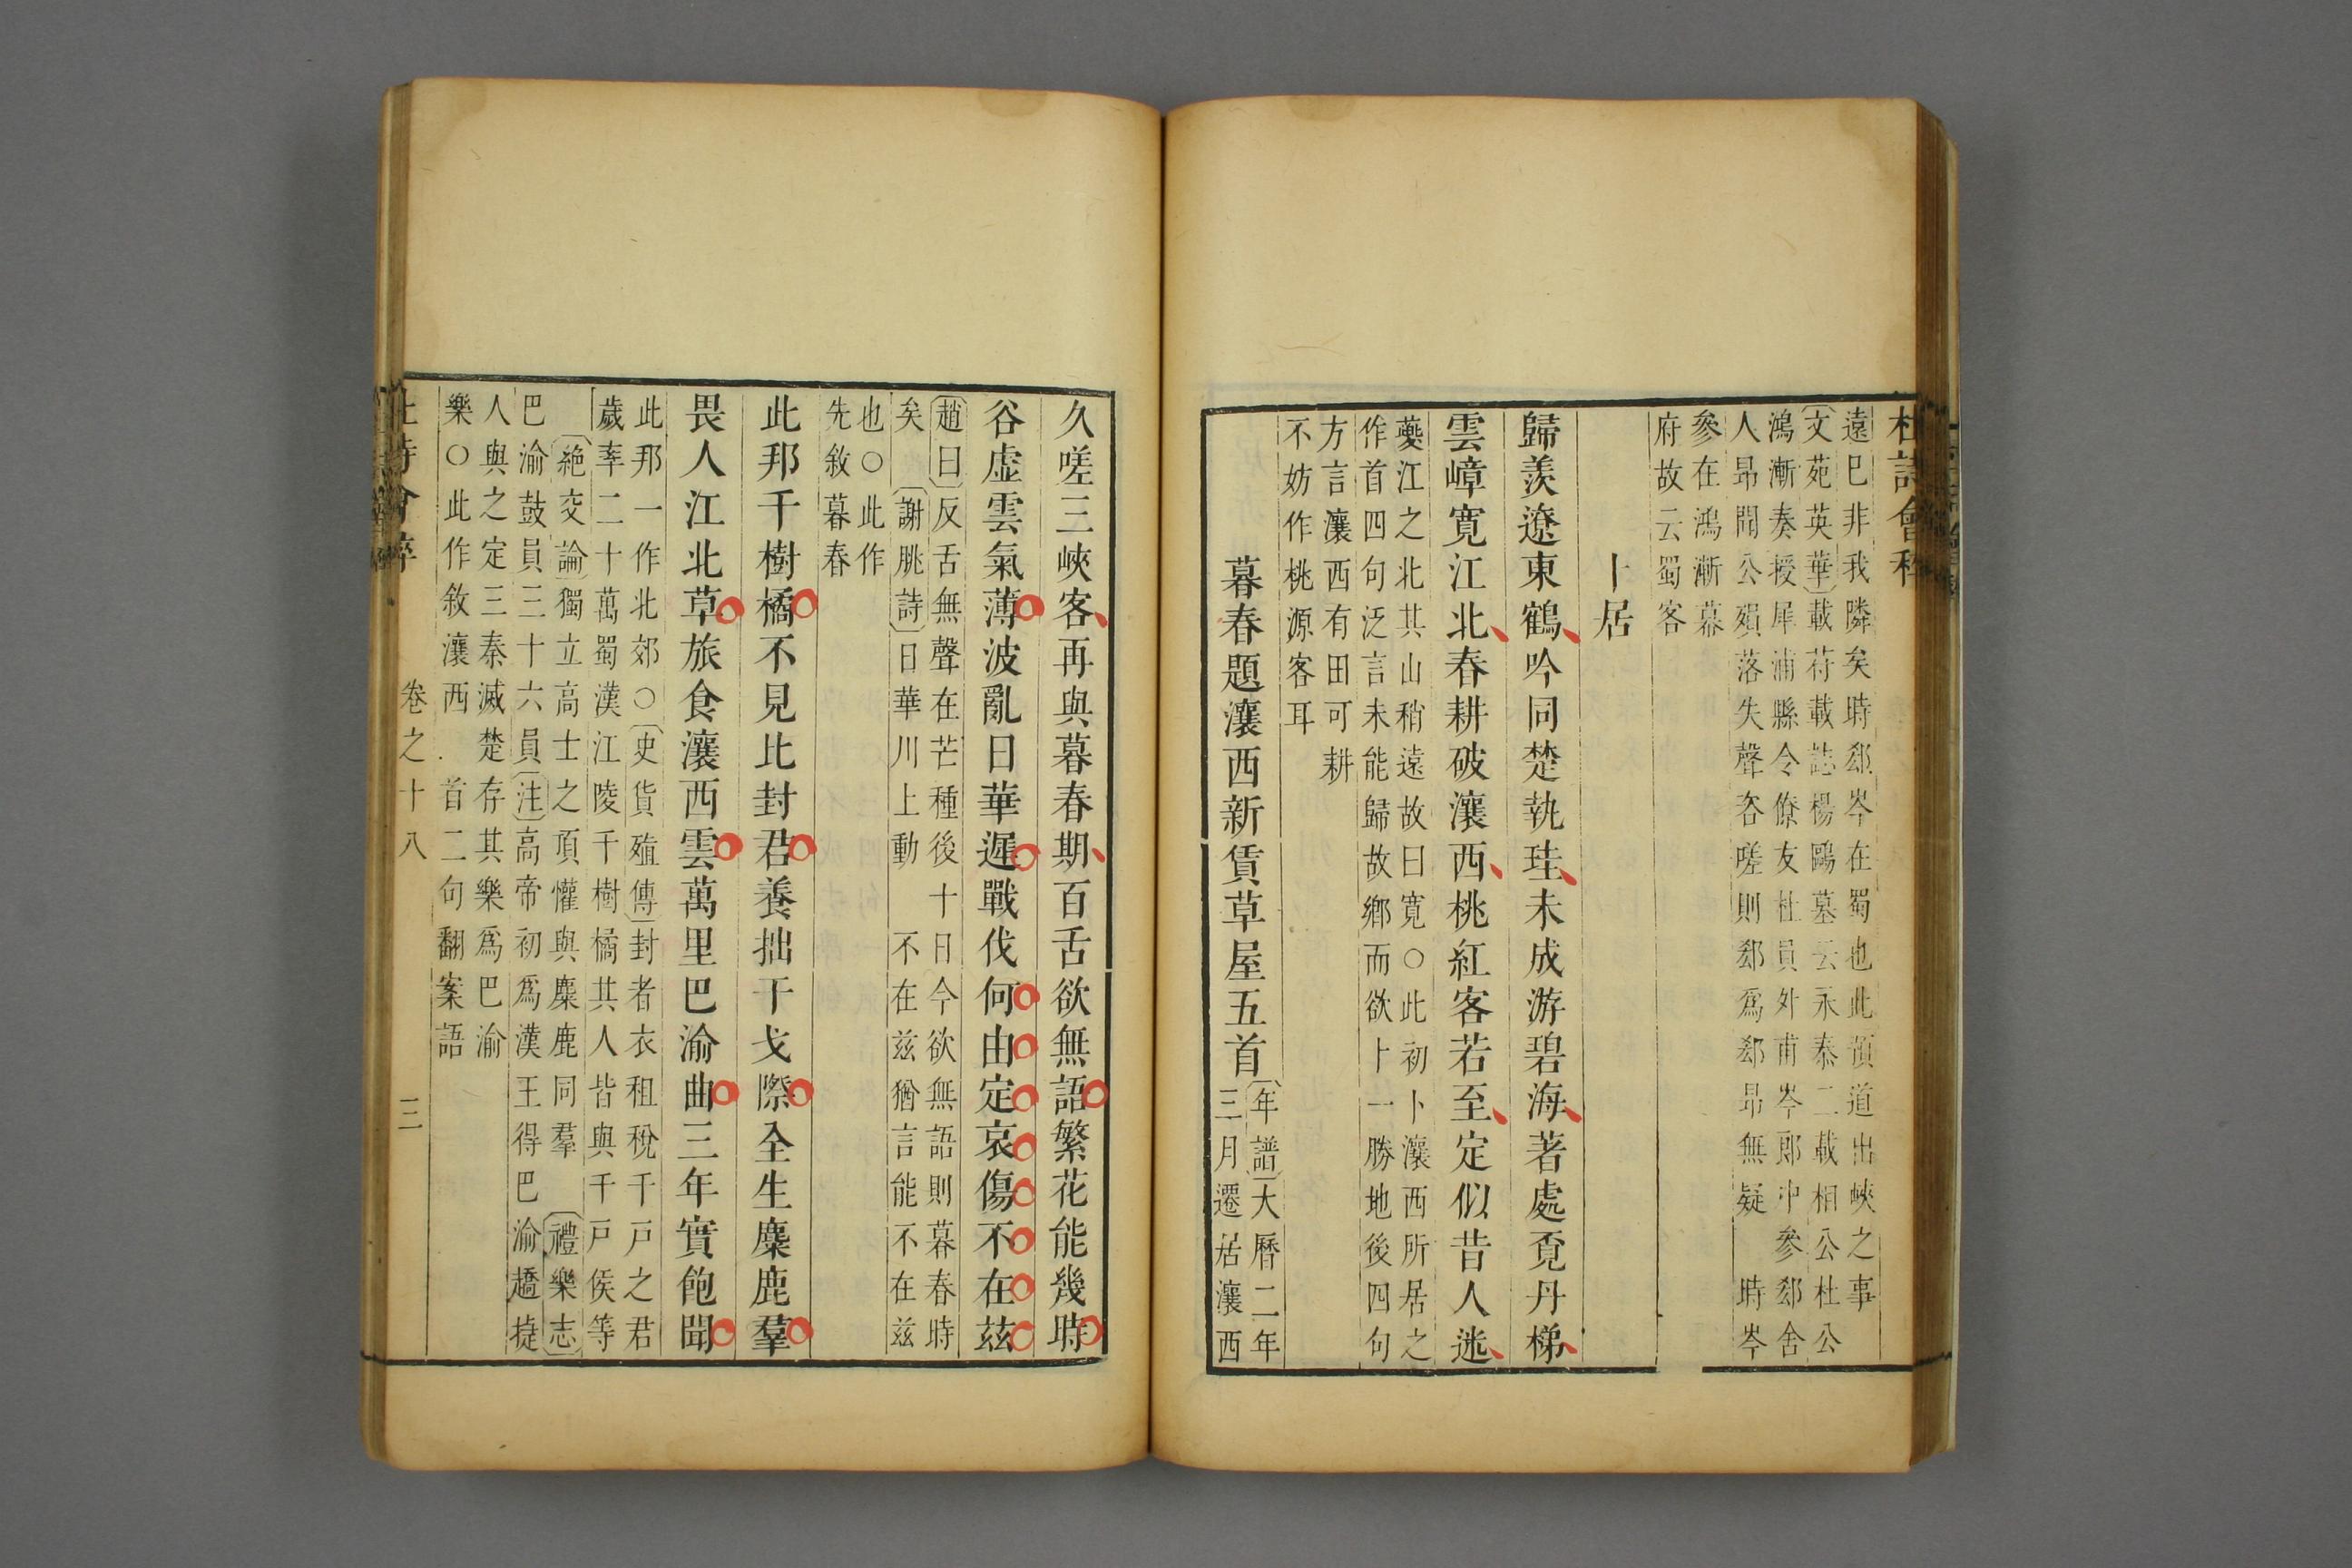 杜詩會稡
遠巳非我隣矣時郄岑在蜀也此預道出峽之事
文苑英華載苻載誌楊鷗墓云永泰二載相公杜公
鴻漸奏授犀浦縣令僚友杜員外甫岑郎中參郄舍
人昂聞公殞落失聲咨嗟則郄爲郄昂無疑 時岑
參在鴻漸幕
府故云蜀客
卜居
歸羨遼東鶴吟同楚執珪未成游碧海著處覓丹梯
雲嶂寛江北春耕破瀼西桃紅客若至定似昔人迷
夔江之北其山稍遠故曰寛○此初卜瀼西所居之
作首四句泛言未能歸故鄉而欲卜一勝地後四句
方言瀼西有田可耕
不妨作桃源客耳
暮春題瀼西新賃草屋五首
年譜大曆二年
三月遷居瀼西
久嗟三峽客再與暮春期百舌欲無語繁花能幾時
谷虛雲氣薄波亂日華遲戰伐何由定哀傷不在茲
趙曰反舌無聲在芒種後十日今欲無語則暮春時
矣 謝朓詩日華川上動 不在茲猶言能不在茲
也○此作
先敘暮春
此邦千樹橘不見比封君養拙干戈際全生麋鹿羣
畏人江北草旅食瀼西雲萬里巴渝曲三年實飽聞
此邦一作北郊○史貨殖傳封者衣租稅千戸之君
歲率二十萬蜀漢江陵千樹橘其人皆與千戸侯等
絶交論獨立高士之頂懽與麋鹿同羣 禮樂志
巴渝鼓員三十六員注高帝初爲漢王得巴渝趫㨗
人與之定三秦滅楚存其樂爲巴渝
樂○此作敘瀼西 首二句翻案語
杜詩會稡 卷之十八 三